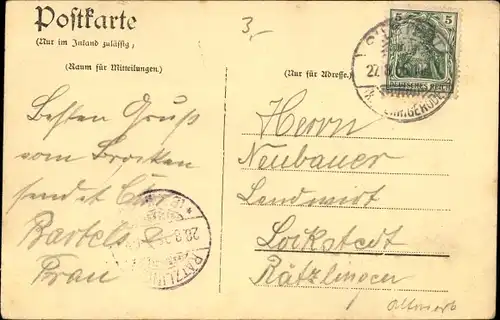 Postkarte
(Nur im Inland zulässig.)
(Raum für Mitteilungen.)
3,-
(Nur für Adresse.)
5 5
DEUTSCHES REICH
22.8.
Besten Gruß
vom Brocken
sendet
Bartels &
Frau
Herrn
Neubauer
Landwirt
Lockstedt
Rätzlingen
Altmark
RÄTZLIN